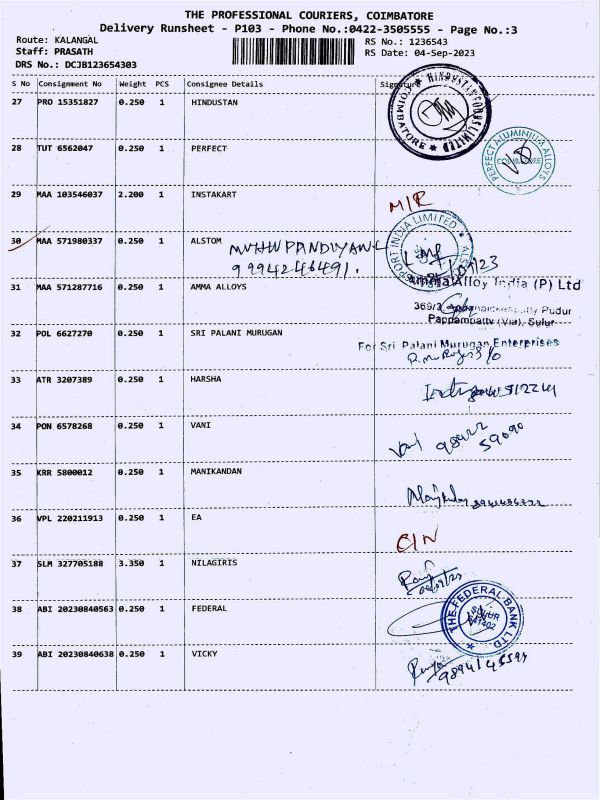 THE PROFESSIONAL COURIERS, COIMBATORE
Delivery Runsheet - P103 - Phone No.:0422-3505555 - Page No.:3
Route: KALANGAL RS No.: 1236543
Staff: PRASATH RS Date: 04-Sep-2023
DRS No.: DCJB123654303
S No Consignment No Weight PCS Consignee Details Signature
27 PRO 15351827 0.250 1 HINDUSTAN
COIMBATORE
28 TUT 6562047 0.250 1 PERFECT PERFECT ALUMINIUM ALLOYS
29 MAA 103546037 2.200 1 INSTAKART
30 MAA 571980337 0.250 1 ALSTOM INDIA LIMITED
9994246491.
31 MAA 571287716 0.250 1 AMMA ALLOYS Alloy India (P) Ltd
Pudur
Pappampatty (Via), Sulur
32 POL 6627270 0.250 1 SRI PALANI MURUGAN For Sri Palani Murugan Enterprises
33 ATR 3207389 0.250 1 HARSHA
34 PON 6578268 0.250 1 VANI
35 KRR 5800012 0.250 1 MANIKANDAN
36 VPL 220211913 0.250 1 EA
37 SLM 327705188 3.350 1 NILAGIRIS
38 ABI 20230840563 0.250 1 FEDERAL THE FEDERAL BANK LTD
SULUR
641402
39 ABI 20230840638 0.250 1 VICKY